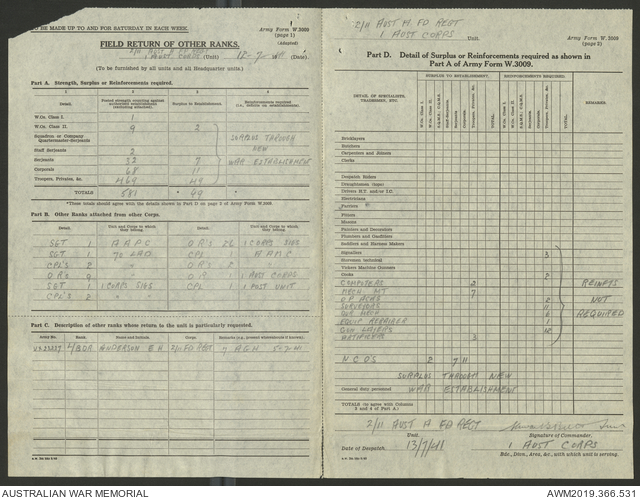 TO BE MADE UP TO AND FOR SATURDAY IN EACH WEEK.
Army Form W.3009
(page 1)
(Adapted)
FIELD RETURN OF OTHER RANKS.
2/11 AUST A FD REGT
1 AUST CORPS (Unit) 12-7-41 (Date)
(To be furnished by all units and all Headquarter units.)
Part A. Strength, Surplus or Reinforcements required.
1 2 3 4
Detail. Surplus to Establishment.
W.Os. Class I. 1
W.Os. Class II. 9 2
Squadron or Company Quartermaster-Serjeants
SURPLUS THROUGH
Staff Serjeants 2
NEW
Serjeants 32 7
WAR ESTABLISHMENT
Corporals 68 11
Troopers, Privates, &c. 469 29
TOTALS 581 * 49 *
*These totals should agree with the details shown in Part D on page 2 of Army Form W.3009.
Part B. Other Ranks attached from other Corps.
Detail. Corps and Corps to which they belong. Detail. Corps and Corps to which they belong.
SGT 1 A A P C O R's 26 1 CORPS SIGS
SGT 1 70 LAD CPL 1 A A M C
CPL's 2 " O R's 2 "
O R's 9 " O R 1 1 AUST CORPS
SGT 1 1 CORPS SIGS CPL 1 1 POST UNIT
CPL's 2 "
Part C. Description of other ranks whose return to the unit is particularly requested.
Army No. Rank. Name and Initials. Corps. Remarks (e.g., present whereabouts if known).
L/BDR ANDERSON E H 2/11 FD REGT 7 AGH 5-7-41
2/11 AUST A FD REGT
1 AUST CORPS
Army Form W.3009
(page 2)
Part D. Detail of Surplus or Reinforcements required as shown in
Part A of Army Form W.3009.
SURPLUS TO ESTABLISHMENT. REINFORCEMENTS REQUIRED.
DETAIL OF SPECIALISTS, TRADESMEN, ETC.
W.Os. Class I.
W.Os. Class II.
Serjeants
Corporals
Troopers, Privates, &c.
TOTAL
W.Os. Class I.
W.Os. Class II.
Serjeants
Corporals
Troopers, Privates, &c.
TOTAL
REMARKS
Bricklayers
Butchers
Carpenters and Joiners
Clerks
Despatch Riders
Draughtsmen (topo)
Drivers H.T. and/or T.C.
Electricians
Farriers
Fitters
Masons
Painters and Decorators
Plumbers and Gasfitters
Saddlers and Harness Makers
Signallers 3
Storemen (unloaders)
Vickers Machine Gunners
Cooks 2
COMPUTERS 2 REINFTS
MECH. MT 7
O.P. ACKS 2 NOT
SURVEYORS
GUN MECH 6 REQUIRED
EQUIP REPAIRER 1
GUN LAYERS 12
ARTIFICERS 3
N C O'S 2 7 11
SURPLUS THROUGH NEW
General duty personnel WAR ESTABLISHMENT
TOTALS (to agree with Columns 3 and 4 of Part A)
2/11 AUST A FD REGT
Unit. Signature of Commander.
Date of Despatch 13/7/41 1 AUST CORPS
Bde., Devn., Area, &c., with which unit is serving.
AUSTRALIAN WAR MEMORIAL
AWM2019.366.531